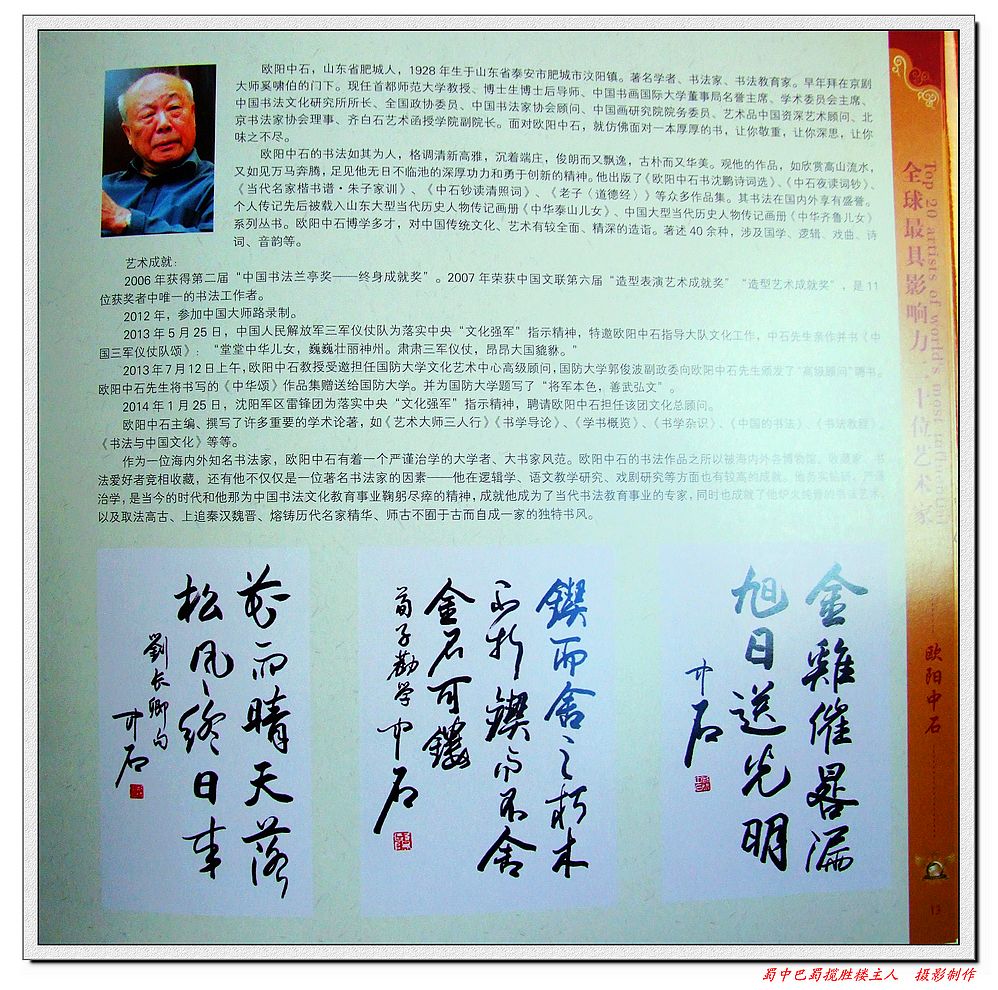 欧阳中石，山东省肥城人，1928年生于山东省泰安市肥城市汶阳镇。著名学者、书法家、书法教育家。早年拜在京剧
大师奚啸伯的门下。现任首都师范大学教授、博士生博士后导师、中国书画国际大学董事局名誉主席、学术委员会主席、
中国书法文化研究所所长、全国政协委员、中国书法家协会顾问、中国画研究院院务委员、艺术品中国资深艺术顾问、北
京书法家协会理事、齐白石艺术函授学院副院长。面对欧阳中石，就仿佛面对一本厚厚的书，让你敬重，让你深思，让你
味之不尽。
欧阳中石的书法如其为人，格调清新高雅，沉着端庄，俊朗而又飘逸，古朴而又华美。观他的作品，如欣赏高山流水，
又如见万马奔腾，足见他无日不临池的深厚功力和勇于创新的精神。他出版了《欧阳中石书沈鹏诗词选》、《中石夜读词钞》、
《当代名家楷书谱·朱子家训》、《中石钞读清照词》、《老子〈道德经〉》等众多作品集。其书法在国内外享有盛誉。
个人传记先后被载入山东大型当代历史人物传记画册《中华泰山儿女》、中国大型当代历史人物传记画册《中华齐鲁儿女》
系列丛书。欧阳中石博学多才，对中国传统文化、艺术有较全面、精深的造诣。著述40余种，涉及国学、逻辑、戏曲、诗
词、音韵等。
艺术成就：
2006年获得第二届“中国书法兰亭奖——终身成就奖”。2007年荣获中国文联第六届“造型表演艺术成就奖”“造型艺术成就奖”，是11
位获奖者中唯一的书法工作者。
2012年，参加中国大师路录制。
2013年5月25日，中国人民解放军三军仪仗队为落实中央“文化强军”指示精神，特邀欧阳中石指导大队文化工作，中石先生亲作并书《中
国三军仪仗队颂》：“堂堂中华儿女，巍巍壮丽神州。肃肃三军仪仗，昂昂大国貔貅。”
2013年7月12日上午，欧阳中石教授受邀担任国防大学文化艺术中心高级顾问，国防大学郭俊波副政委向欧阳中石先生颁发了“高级顾问”聘书。
欧阳中石先生将书写的《中华颂》作品集赠送给国防大学。并为国防大学题写了“将军本色，善武弘文”。
2014年1月25日，沈阳军区雷锋团为落实中央“文化强军”指示精神，聘请欧阳中石担任该团文化总顾问。
欧阳中石主编、撰写了许多重要的学术论著，如《艺术大师三人行》《书学导论》、《学书概览》、《书学杂识》、《中国的书法》、《书法教程》、
《书法与中国文化》等等。
作为一位海内外知名书法家，欧阳中石有着一个严谨治学的大学者、大书家风范。欧阳中石的书法作品之所以被海内外各博物馆、收藏家、书
法爱好者竞相收藏，还有他不仅仅是一位著名书法家的因素——他在逻辑学、语文教学研究、戏剧研究等方面也有较高的成就。他务实钻研、严谨
治学，是当今的时代和他那为中国书法文化教育事业鞠躬尽瘁的精神，成就他成为了当代书法教育事业的专家，同时也成就了他炉火纯青的书法艺术，
以及取法高古、上追秦汉魏晋、熔铸历代名家精华、师古不囿于古而自成一家的独特书风。
花雨晴天落
松风终日来
劉长卿句
中石
鍥而舍之朽木
不折鍥而不舍
金石可鏤
荀子勸学
中石
金雞催晷漏
旭日送光明
中石
Top 20 artists of world's most influential
全球最具影响力二十位艺术家
欧阳中石
13
蜀中巴蜀揽胜楼主人 摄影制作